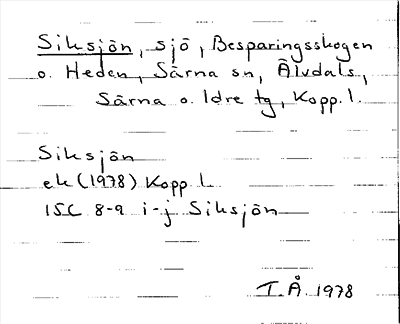 Siksjön, sjö, Besparingsskogen
o. Heden, Särna sn, Älvdals,
Särna o. Idre tg, Kopp. l.
Siksjön
ek (1978) Kopp l.
15C 8-9 i-j Siksjön
I.Å. 1978